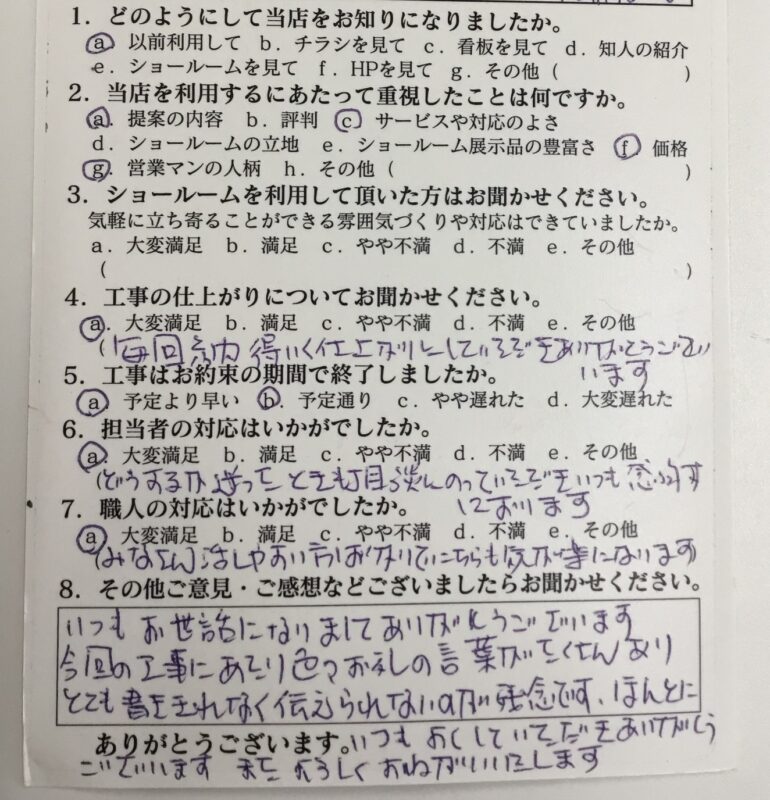 1. どのようにして当店をお知りになりましたか。
a. 以前利用して b. チラシを見て c. 看板を見て d. 知人の紹介
e. ショールームを見て f. HPを見て g. その他 ( )
2. 当店を利用するにあたって重視したことは何ですか。
a. 提案の内容 b. 評判 c. サービスや対応のよさ
d. ショールームの立地 e. ショールーム展示品の豊富さ f. 価格
g. 営業マンの人柄 h. その他 ( )
3. ショールームを利用して頂いた方はお聞かせください。
気軽に立ち寄ることができる雰囲気づくりや対応はできていましたか。
a. 大変満足 b. 満足 c. やや不満 d. 不満 e. その他
( )
4. 工事の仕上がりについてお聞かせください。
a. 大変満足 b. 満足 c. やや不満 d. 不満 e. その他
(毎回納得いく仕上がりにしていただきありがとうござい
います
5. 工事はお約束の期間で終了しましたか。
a. 予定より早い b. 予定通り c. やや遅れた d. 大変遅れた
6. 担当者の対応はいかがでしたか。
a. 大変満足 b. 満足 c. やや不満 d. 不満 e. その他
(どうするか迷ったときも相談にのっていただきいつも感謝
しております
7. 職人の対応はいかがでしたか。
a. 大変満足 b. 満足 c. やや不満 d. 不満 e. その他
(みなさん話しやすい方ばかりでこちらも気が楽になります
8. その他ご意見・ご感想などございましたらお聞かせください。
いつもお世話になりましてありがとうございます
今回の工事にあたり色々お礼の言葉がたくさんあり
とても書ききれなく伝えられないのが残念です、ほんとに
ありがとうございます。いつもよくしていただきありがとう
ございます またよろしくおねがいいたします